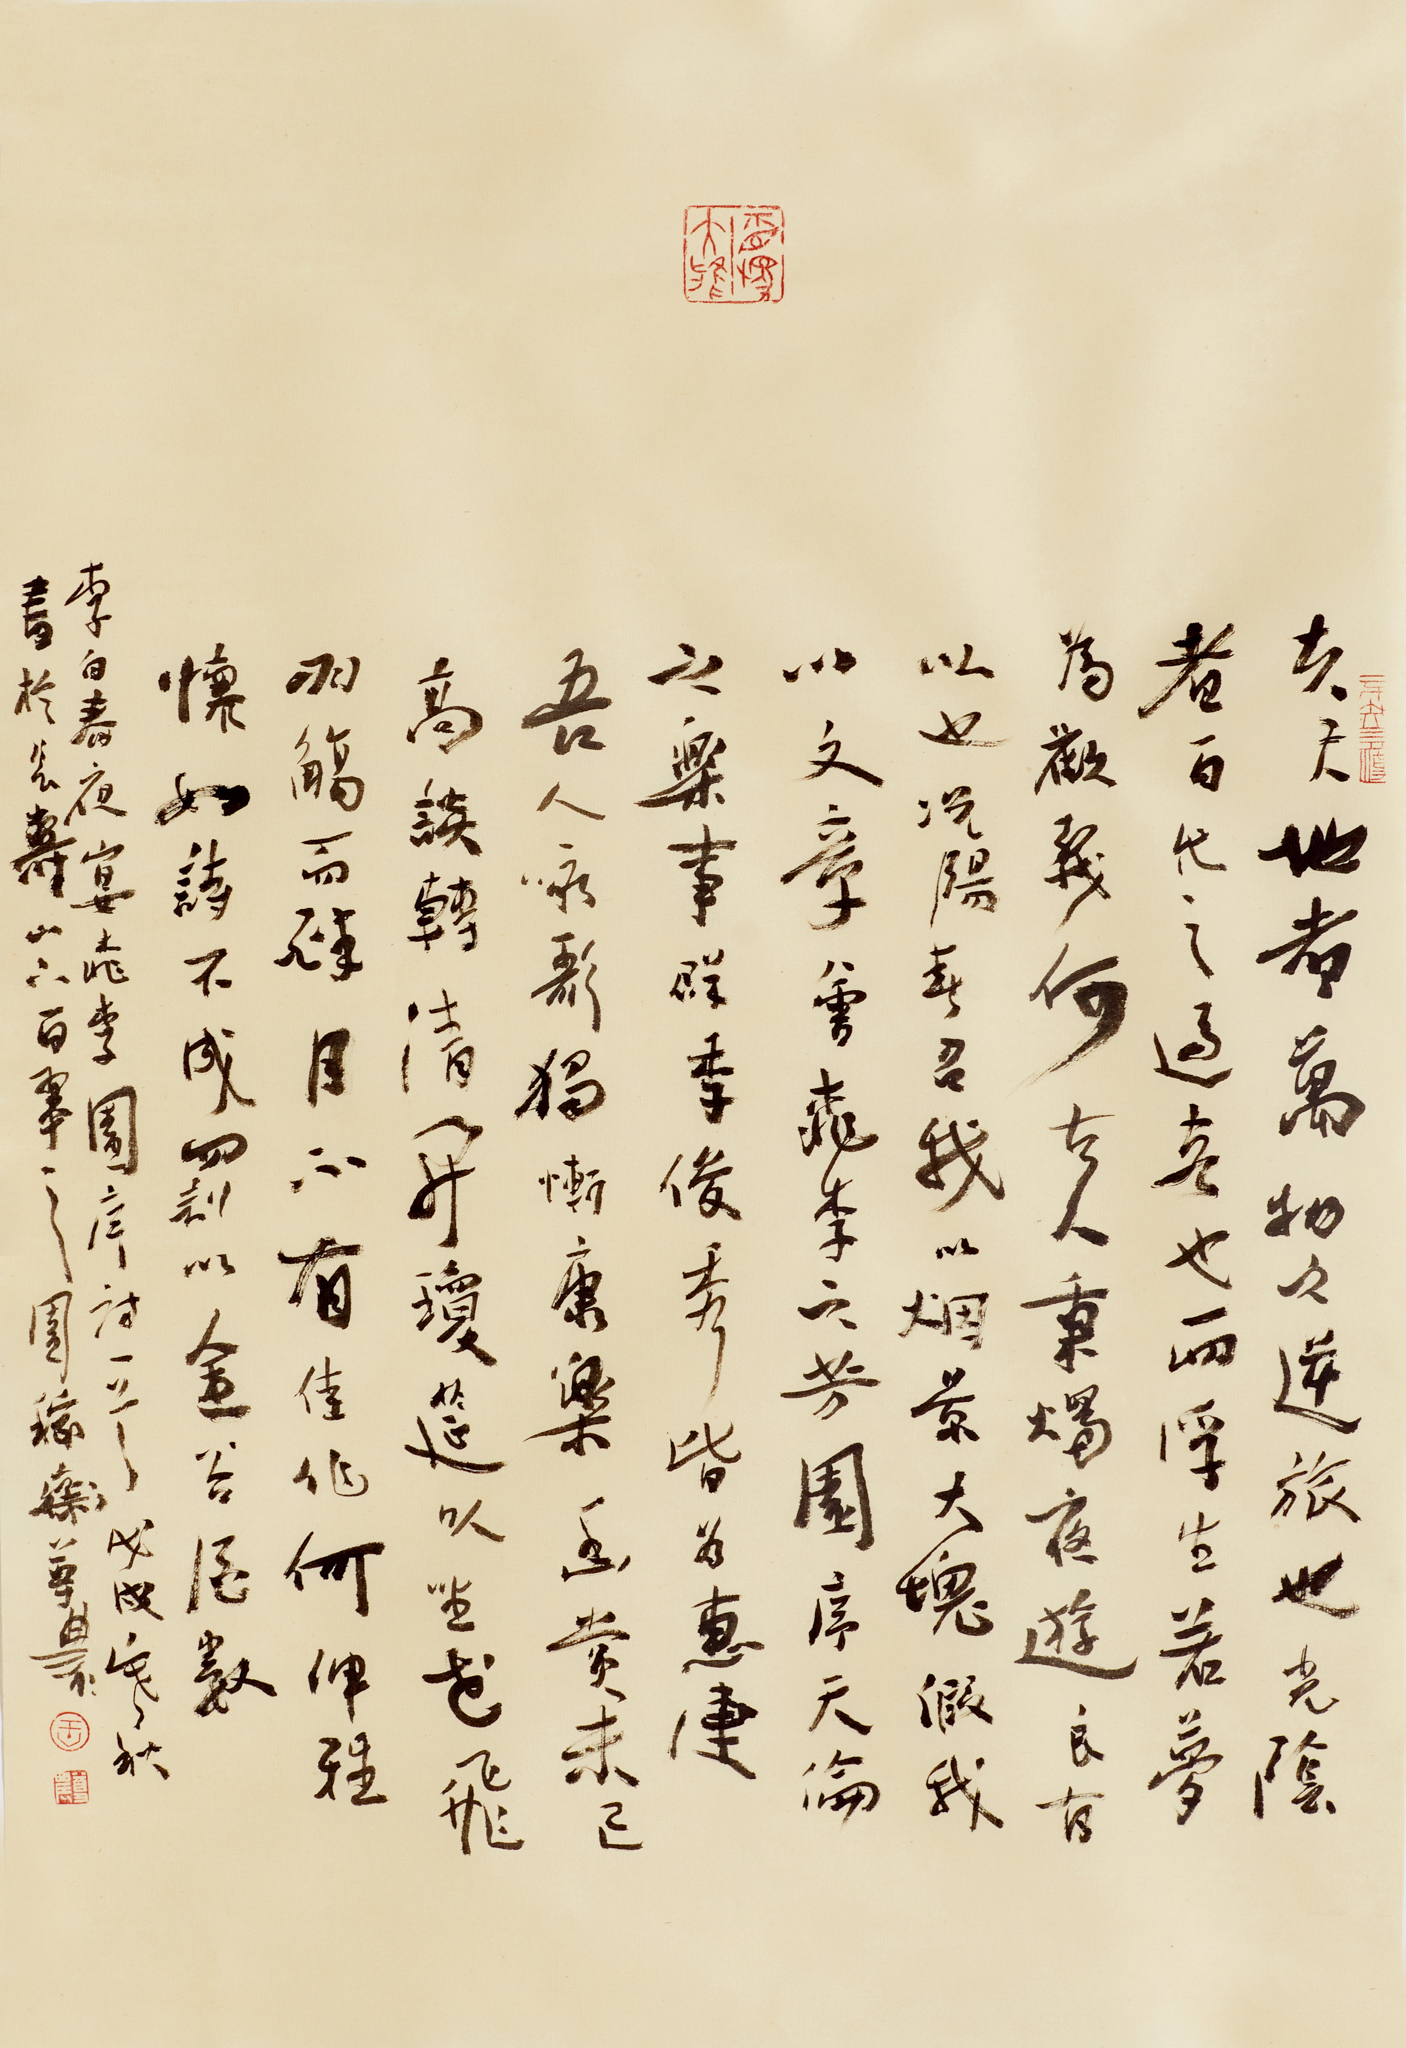 夫天地者萬物之逆旅也光陰
者百代之過客也而浮生若夢
為歡幾何古人秉燭夜遊良有
以也況陽春召我以烟景大塊假我
以文章會桃李之芳園序天倫
之樂事群季俊秀皆為惠連
吾人詠歌獨慚康樂幽賞未已
高談轉清開瓊筵以坐花飛
羽觴而醉月不有佳作何伸雅
懷如詩不成罰以金谷酒數
李白春夜宴桃李園序詩一首戊戌寒秋
書於長壽山六百畝之園